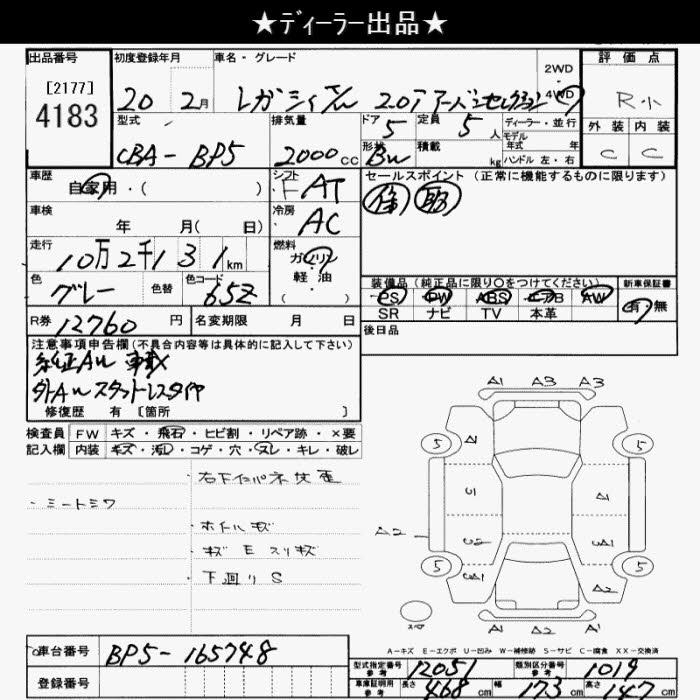 ★ディーラー出品★
出品番号
[2177]
4183
初度登録年月
20 2月
車名・グレード
レガシィ 20i アーバンセレクション
2WD
・
4WD
評価点
R小
外装 内装
C C
型式
CBA-BP5
排気量
2000cc
ドア
5
定員
5人
形状
BW
積載
kg
ディーラー・並行
モデル
年式 年
ハンドル 左・右
車歴
自家用・( )
シフト
F AT
車検
年 月( 日)
冷房
AC
走行
10万2千131km
燃料
ガソリン
・
軽・油
( )
色
グレー
色替
色コード
65Z
R券
12760円
名変期限 月 日
セールスポイント(正常に機能するものに限ります)
装備品(純正品に限り○をつけてください)
PS PW ABS エアB AW
SR ナビ TV 本革
新車保証書
有・無
後日品
注意事項申告欄(不具合内容等は具体的に記入して下さい)
純正Aw 車載
外Aw スタットレスタイヤ
修復歴 有 [箇所 ]
検査員
記入欄
FW キズ・飛石・ヒビ割・リペア跡・×要
内装 キズ・汚レ・コゲ・穴・スレ・キレ・破レ
・シートシワ
・ホイールキズ
・キズ E スリキズ
・下廻り S
A1 A3 A3
5 A1 5
U1 A1
A2 U2 UA1
5 UA1 A2 5
A1 A2 A1
A-キズ E-エクボ U-凹み W-補修跡 S-サビ C-腐食 XX-交換済
車台番号
BP5-165748
登録番号
型式指定番号
参考
12051
類別区分番号
参考
1019
車庫証明用
参考
長さ 468cm 幅 173cm 高さ 147cm